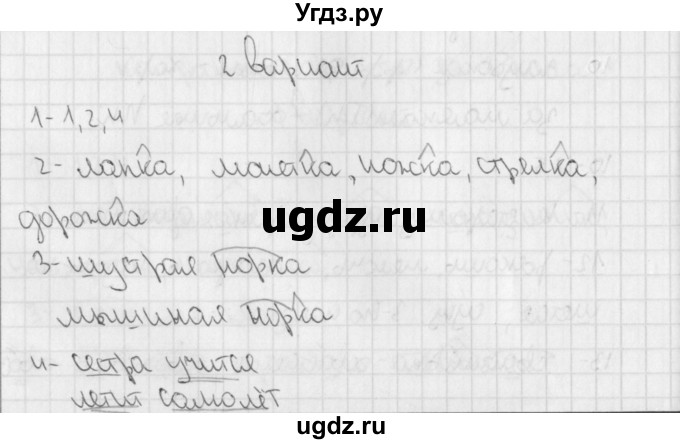 Угдз.ру
2 вариант
1-1,2,4
2- лапка, монетка, ножка, стрелка,
дорожка
ugdz.ru
3- шустрая норка
мышиная норка
4- сестра учится
летит самолёт
ugdz.ru